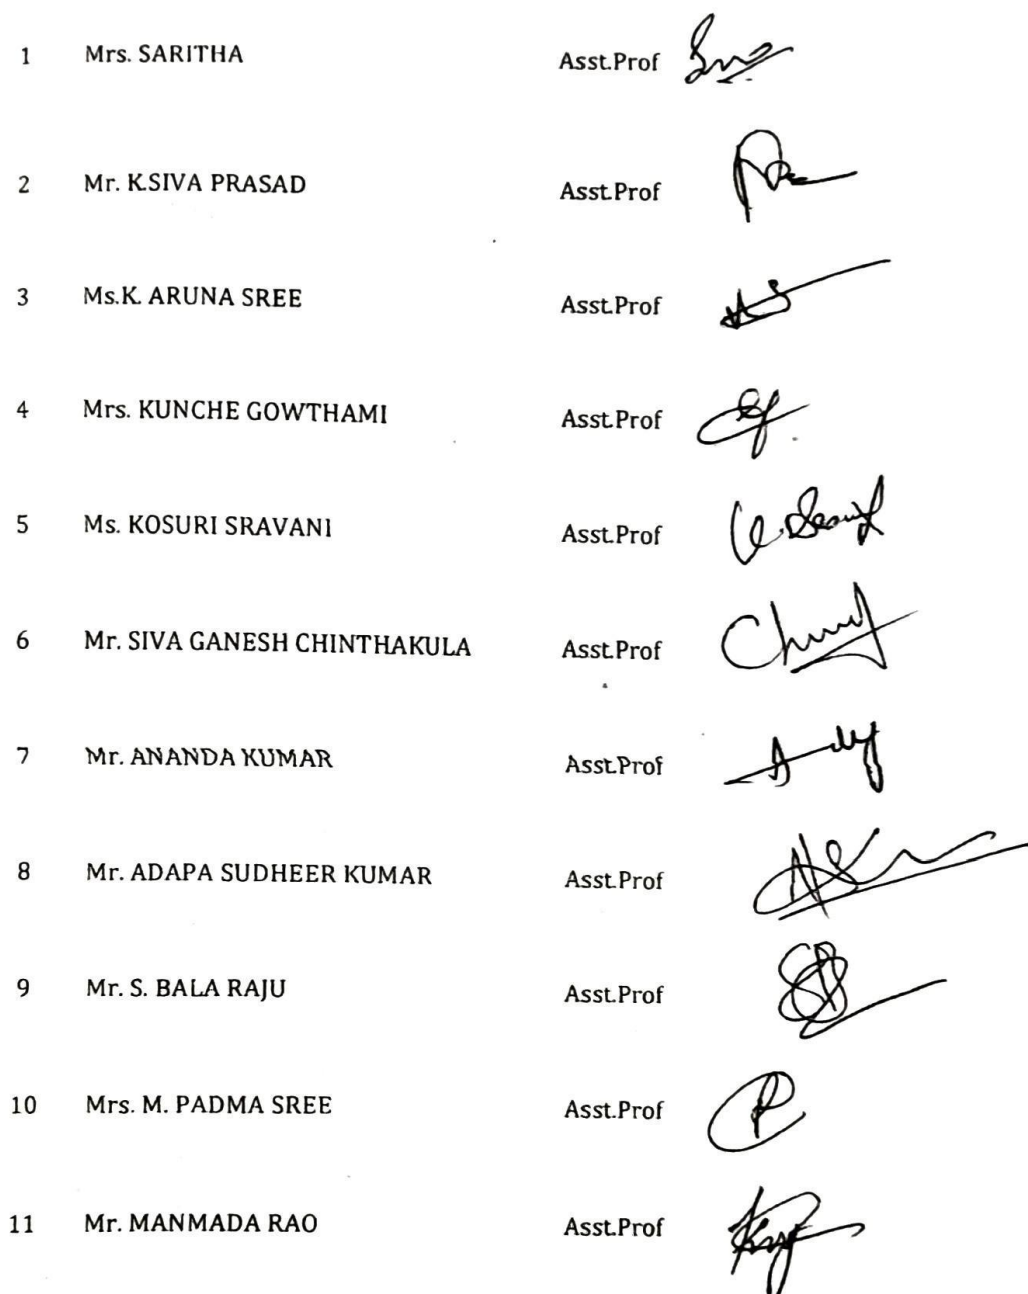 1 Mrs. SARITHA Asst.Prof
2 Mr. K.SIVA PRASAD Asst.Prof
3 Ms.K. ARUNA SREE Asst.Prof
4 Mrs. KUNCHE GOWTHAMI Asst.Prof
5 Ms. KOSURI SRAVANI Asst.Prof
6 Mr. SIVA GANESH CHINTHAKULA Asst.Prof
7 Mr. ANANDA KUMAR Asst.Prof
8 Mr. ADAPA SUDHEER KUMAR Asst.Prof
9 Mr. S. BALA RAJU Asst.Prof
10 Mrs. M. PADMA SREE Asst.Prof
11 Mr. MANMADA RAO Asst.Prof